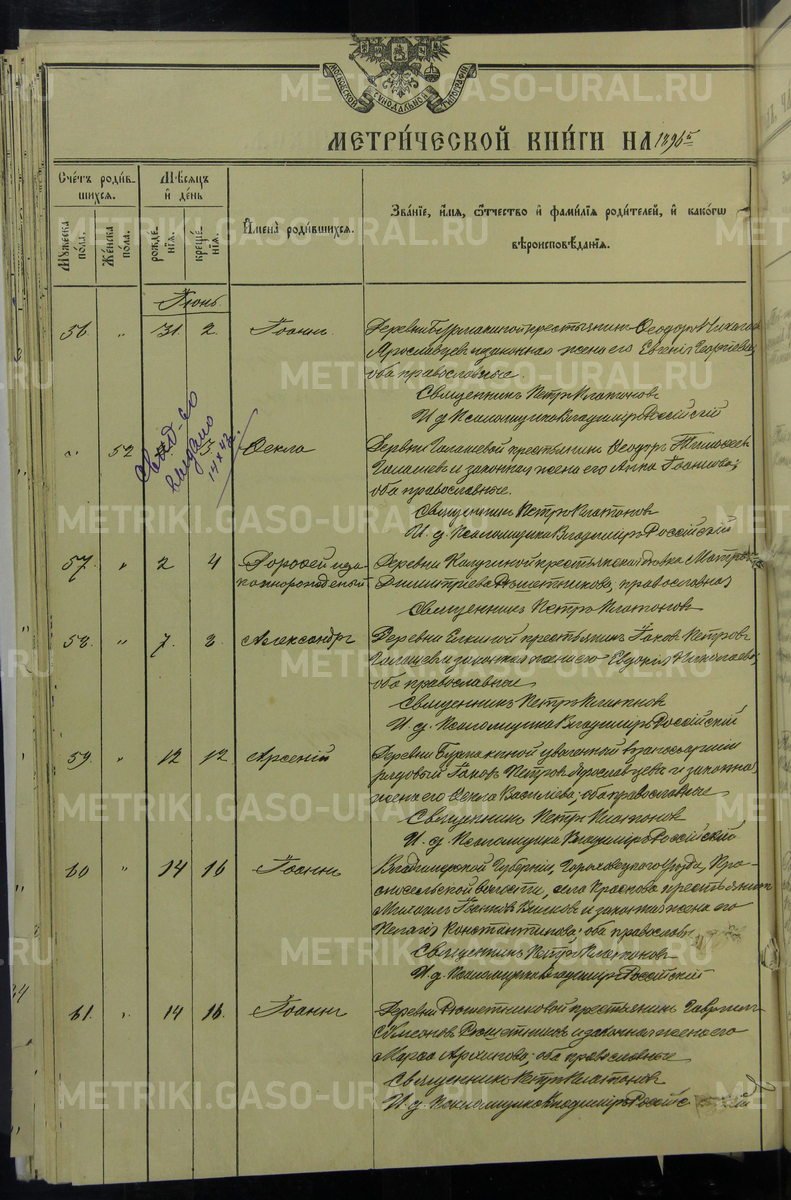 МОСКОВСКОЙ СѴНОДАЛЬНОЙ ТИПОГРАФІИ
МЕТРИ́ЧЕСКОЙ КНИ́ГИ НА 1896 й
Сче́тъ роди́в-
шихся.
Му́жеска по́ла.
Же́нска по́ла.
Мѣ́сяцъ
и҆ де́нь
рожде́нїя.
креще́нїя.
И҆мена̀ роди́вшихся.
Зва́нїе, и҆́мя, ѻ҆́тчество и҆ фами́лїя роди́телей, и҆ како́гѡ
вѣроисповѣ́данїя.
Іюнь.
56 " 31. 2. Іоаннъ. Деревни Бурмакиной крестьянинъ Ѳеодоръ
Ярославцевъ и законная жена его Евгенія Георгіева,
оба православные.
Священникъ Петръ Платоновъ
И. д. Псаломщика Владиміръ Россійскій
" 52 Свид-во
выдано
14 X 43 г.
Ѳекла Деревни Галашевой крестьянинъ Ѳеодоръ Тимоѳеевъ
Галашевъ и законная жена его Анна Іоаннова;
оба православные.
Священникъ Петръ Платоновъ
И. д. Псаломщика Владиміръ Россійскій
57. " 2 4 Дороѳей неза-
коннорожденый Деревни Калугиной крестьянская дѣвка Матрона
Димитріева Рѣшетникова, православная
Священникъ Петръ Платоновъ
58. " 7. 8. Александръ Деревни крестьянинъ Іаковъ Петровъ
Галашевъ и законная жена его Евдокія Николаева;
оба православные
Священникъ Петръ Платоновъ
И. д. Псаломщика Владиміръ Россійскій
59. " 12 12 Арсеній Деревни Бурмакиной уволенный въ запасъ арміи
рядовый Іаковъ Петровъ Ярославцевъ и законная
жена его Ѳекла Василіева; оба православные
Священникъ Петръ Платоновъ
И. д. Псаломщика Владиміръ Россійскій
60 " 14 16 Іоаннъ Владимірской Губерніи, Гороховецкаго Уѣзда, Кра-
сносельской волости, села Краснова крестьянинъ
Михаилъ Іоанновъ и законная жена его
Пелагія Константинова; оба православные
Священникъ Петръ Платоновъ
И. д. Псаломщика Владиміръ Россійскій
61. " 14 16. Іоаннъ Деревни Рѣшетниковой крестьянинъ Гавріилъ
Симеоновъ Рѣшетниковъ и законная жена его
Марѳа Архипова; оба православные
Священникъ Петръ Платоновъ
И. д. Псаломщика Владиміръ Россійскій
METRIKI.GASO-URAL.RU